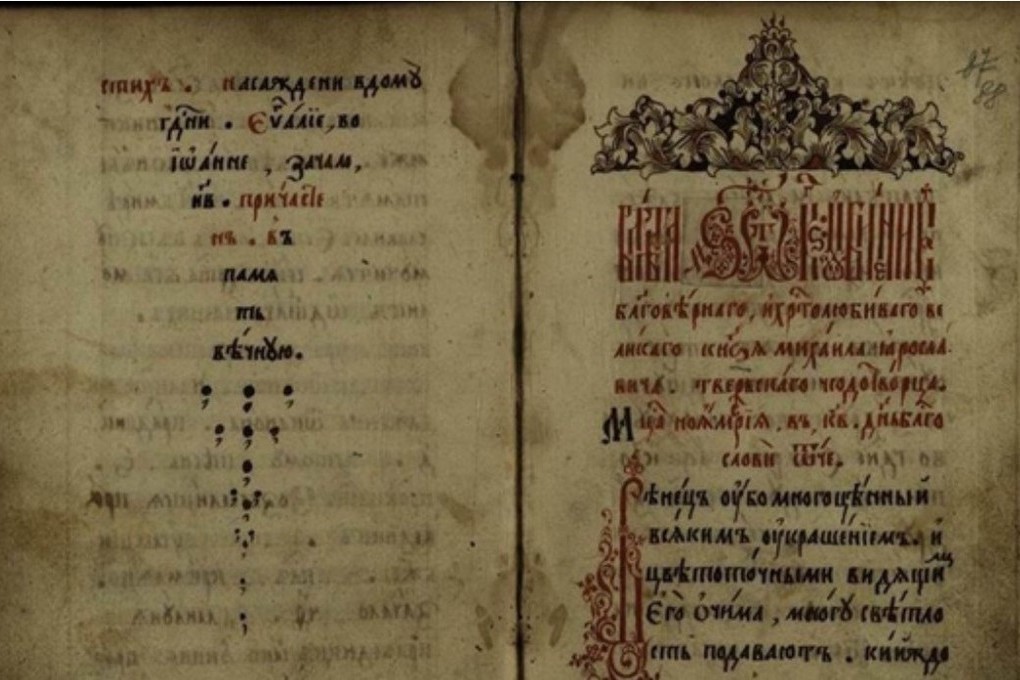 стихъ . насаждени вдомꙋ
гдⷭ҇ни . Єѵⷢ҇аліе, во
іѡа́нне , зача́ло,
нв . прича́стїе
нъ . въ
памѧ
ть
вѣ́чнꙋю.
Блговѣрнаго, и хрⷭ҇толюби́ваго ве
ликаго кнѧзѧ михаила ꙗросла
вича . тверскаго чюдотворца.
Мцⷭ҇а ноѧбрїѧ , въ кв . днь блго
слови ѿче.
Вѣне́цъ ѹ҆́бо многоцѣ́нный
всѧкимъ ѹ҆краше́нїемъ . и҆
цвѣтоточными видѧщи
Єго̀ ѻчи́ма , многꙋ свѣтло
сть подава́ютъ . кїйждо